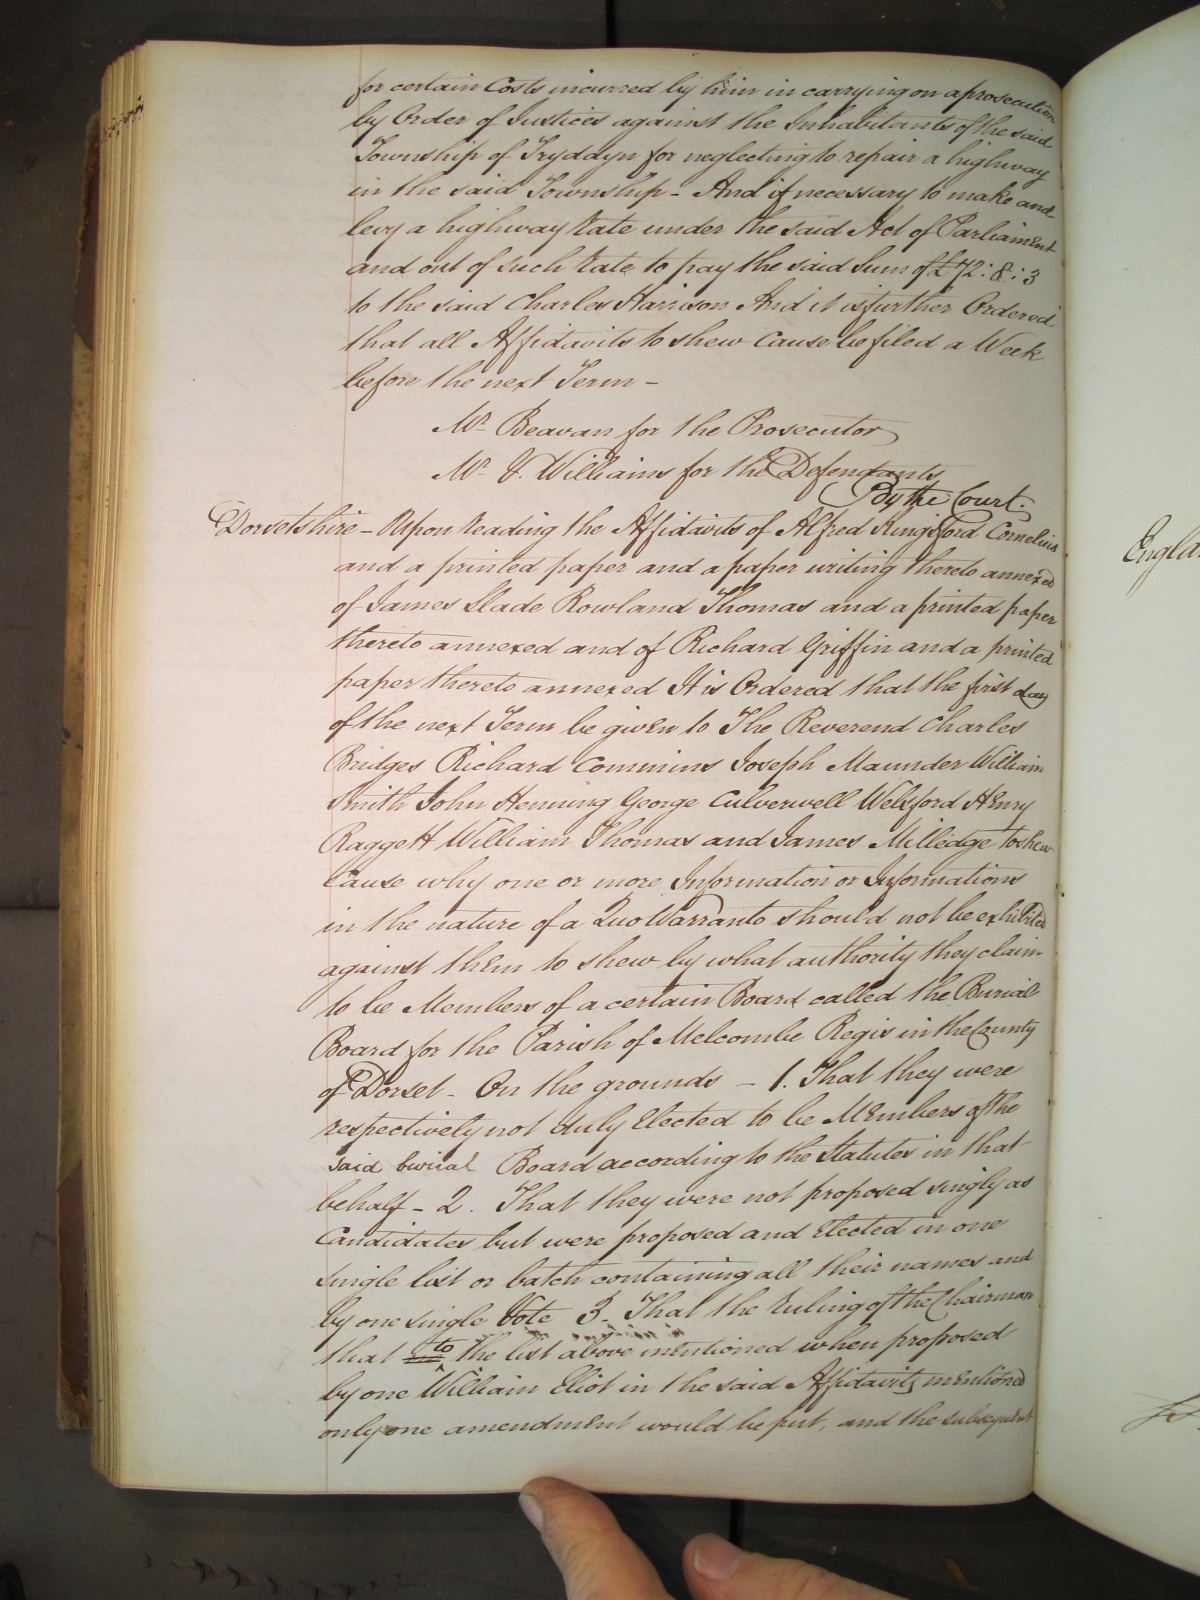 for certain Costs incurred by him in carrying on a prosecution
by Order of Justices against the Inhabitants of the said
Township of Tryddyn for neglecting to repair a highway
in the said Township - And if necessary to make and
levy a highway Rate under the said Act of Parliament
and out of such Rate to pay the said Sum of £72:8:3
to the said Charles Harrison And it is further Ordered
that all Affidavits to shew Cause be filed a Week
before the next Term -
Mr Beavan for the Prosecutor
Mr V. Williams for the Defendants
By the Court.
Dorsetshire - Upon reading the Affidavits of Alfred Kingsford Cornelius
and a printed paper and a paper writing thereto annexed
of James Slade Rowland Thomas and a printed paper
thereto annexed and of Richard Griffin and a printed
paper thereto annexed It is Ordered that the first day
of the next Term be given to The Reverend Charles
Bridges Richard Commins Joseph Maunder William
Smith John Henning George Culverwell Welsford Henry
Raggett William Thomas and James Milledge to shew
Cause why one or more Information or Informations
in the nature of a Quo Warranto should not be exhibited
against them to shew by what authority they claim
to be Members of a certain Board called the Burial
Board for the Parish of Melcombe Regis in the County
of Dorset - On the grounds - 1. That they were
respectively not duly Elected to be Members of the
said burial Board according to the Statutes in that
behalf - 2. That they were not proposed singly as
Candidates but were proposed and Elected in one
single list or batch containing all their names and
by one single Vote 3. That the Ruling of the Chairman
that to the list above mentioned when proposed
by one William Eliot in the said Affidavits mentioned
only one amendment would be put, and the subsequent
Engla